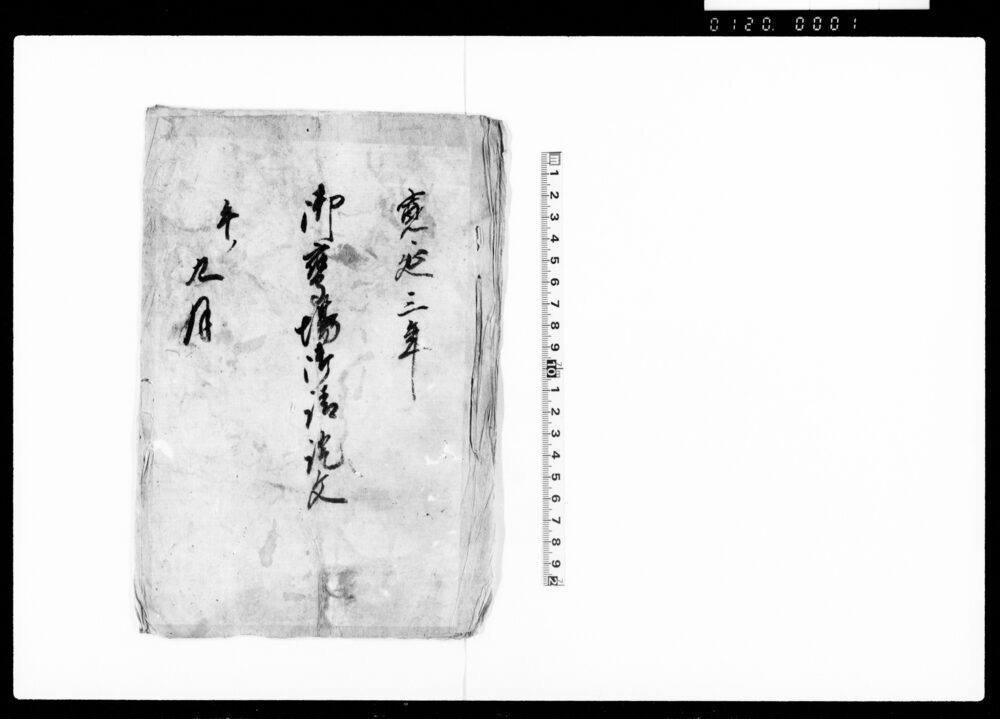 0120. 0001
寛延三年
御鷹場御請証文
午ノ九月
m 1 2 3 4 5 6 7 8 9 10 1 2 3 4 5 6 7 8 9 2